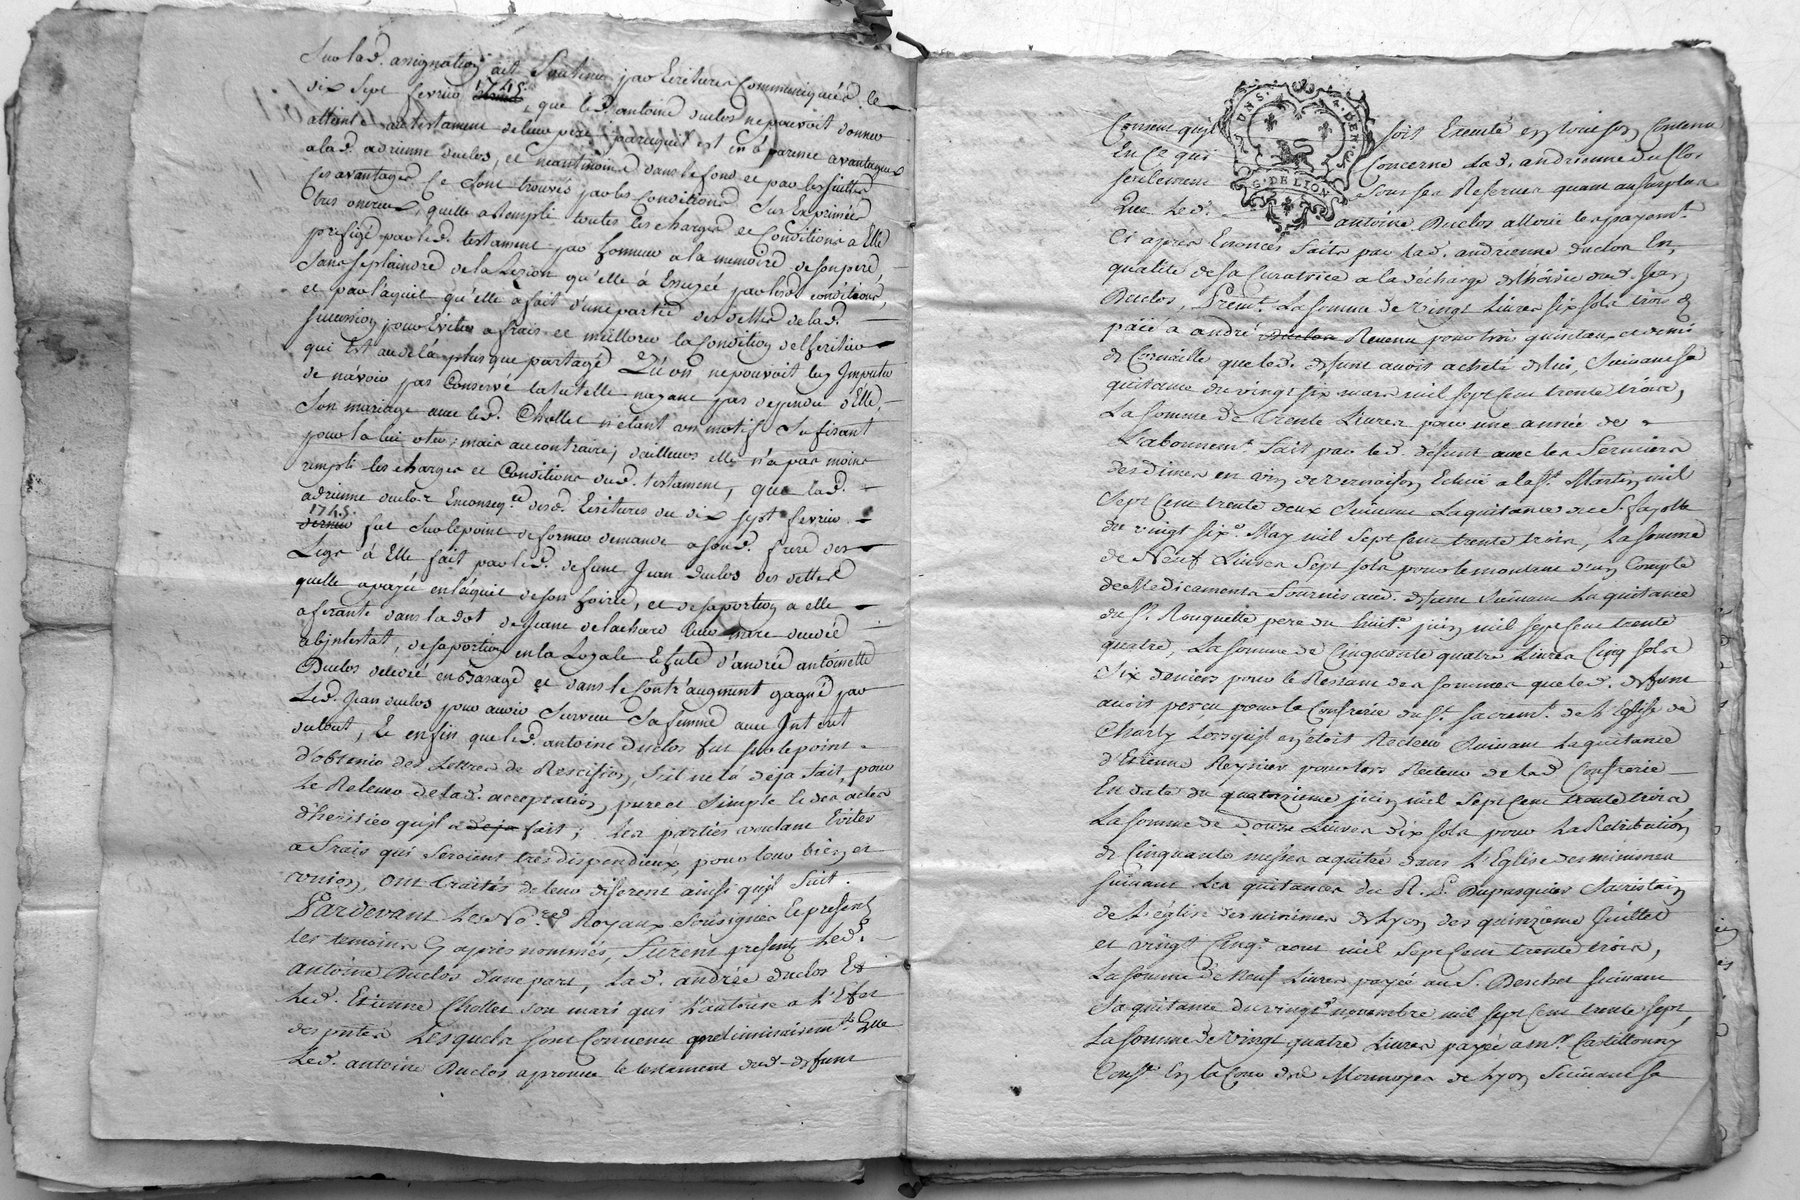 Sur lad. assignation ait Soutenu par Ecritures Communiquées le
dix Sept fevrier 1745. que led. antoine duclos ne pouvoit donner
atteinte au testament de leur pere parcequ'il est en aparence avantageux
a lad. adrienne duclos, et neantmoins dans le fond et par les suittes
ces avantages Ce sont trouvés par les Conditions Sus Exprimées
tres onereux, quelle a Remplÿ toutes les charges et Conditions a Elle
prefigé par led. testament par honneur a la memoire de son pere,
Sans se plaindre de la Lezion qu'elle à Essuyée par lesd. conditions,
et par l'aquit qu'elle a fait d'une partie des dettes de lad.
Succession pour Eviter a frais et meillorer la Condition de l'heritier
qui Est au delà plus que partagé Qu'on ne pouvoit luy Imputer
de n'avoir pas Conservé la tutelle n'ayant pas dependu d'Elle,
Son mariage avec led. Chollet n'étant un motif Sufisant
pour la lui oter; mais au contraire, d'ailleurs elle n'a pas moins
rempli les charges et Conditions dud. testament, que lad.
adrienne duclos Enconseq.ce desd. Ecritures du dix sept fevrier
1745. fut Sur le point de former demande a sond. frere des
Legs à Elle fait par led. defunt Jean Duclos des dettes
quelle a payée en l'aquit de son hoirie, et de sa portion a elle
aferante dans la dot de Jeanne delachard leur mere decedée
abintestat, de sa portion en la Legale
Duclos decedée et dans le Contr'augment gagné par
Led. Jean duclos pour avoir Survecu Sa femme avec Interet
dutout, Et enfin que led. antoine Duclos fut sur le point
d'obtenir des Lettres de Rescision, s'il ne l'a deja fait, pour
Le Relever de lad. acceptation pure et Simple et des actes
d'heritier qu'il a deja fait; Les parties voulant Eviter
a frais qui Seroient tres dispendieux, pour leur bien et
union, ont traités de leur diferent ainsi qu'il Suit.
Pardevant Les No.res Royaux Soussignés Et presents
les temoins Cy après nommés, furent presents Led.
Antoine Duclos d'une part, Lad. andrée duclos Et
Led. Etienne Chollet son mari qui L'autorise a L'Efet
des pntes Lesquels sont Convenu preliminairem.t Que
Led. antoine Duclos aprouve le testament dud. defunt
G. DE LION
Consent qu'il soit Executé en tout son Contenu
En Ce qui Concerne lad. andrienne duclos
seulement Sous ses Reserves quant au surplus
Que Led. antoine Duclos alloüe les payem.ts
Ci après Enoncés faits par lad. andrienne duclos En
qualité de sa Curatrice a la décharge de l'hoirie dud. Jean
Duclos, Prem.t La somme de vingt Livres six sols trois d.
païé a andré Revenu pour trois quintaux et demi
de Cornaille que led. defunt avoit acheté de lui, Suivant sa
quitance du vingt six mars mil sept cent trente trois,
La somme de trente Livres pour une année de
L'abonnem.t fait par led. défunt avec les fermiers
des dimes en vin de vernaison Echuë a la St. Martin mil
Sept Cent trente deux Suivant La quitance de S. fayolle
du vingt six.e May mil Sept Cent trente trois, La somme
de Neuf Livres Sept sols pour le montant d'un Compte
de Medicaments Fournis aud. defunt Suivant La quitance
du Sr. Rouquette pere du huit.e juin mil sept Cent trente
quatre, La Somme de Cinquante quatre Livres Cinq sols
Six deniers pour le Restant des sommes que led. defunt
avoit perçu pour la Confrerie du St. Sacrem.t de L'Eglise de
Charly Lorsqu'il en étoit Recteur Suivant la quitance
d'Etienne Reynier pour lors Recteur de lad. Confrerie
En date du quatorzieme juin mil Sept Cent trente trois
La somme de Douze Livres dix sols pour La Retribution
de Cinquante messes aquitté dans L'Eglise des minimes
suivant Les quitances du R. P. Dupasquier Sacristain
de L'église des minimes de Lyon des quinzieme Juillet
et vingt Cinq.e aout mil Sept Cent trente trois,
La Somme de Neuf Livres payée au S. Deschet suivant
Sa quitance du vingt novembre mil sept Cent trente sept,
La Somme de vingt quatre Livres payée a m.r Castillonny
Cons.er En la Cour des Monnoyes de Lyon Suivant sa